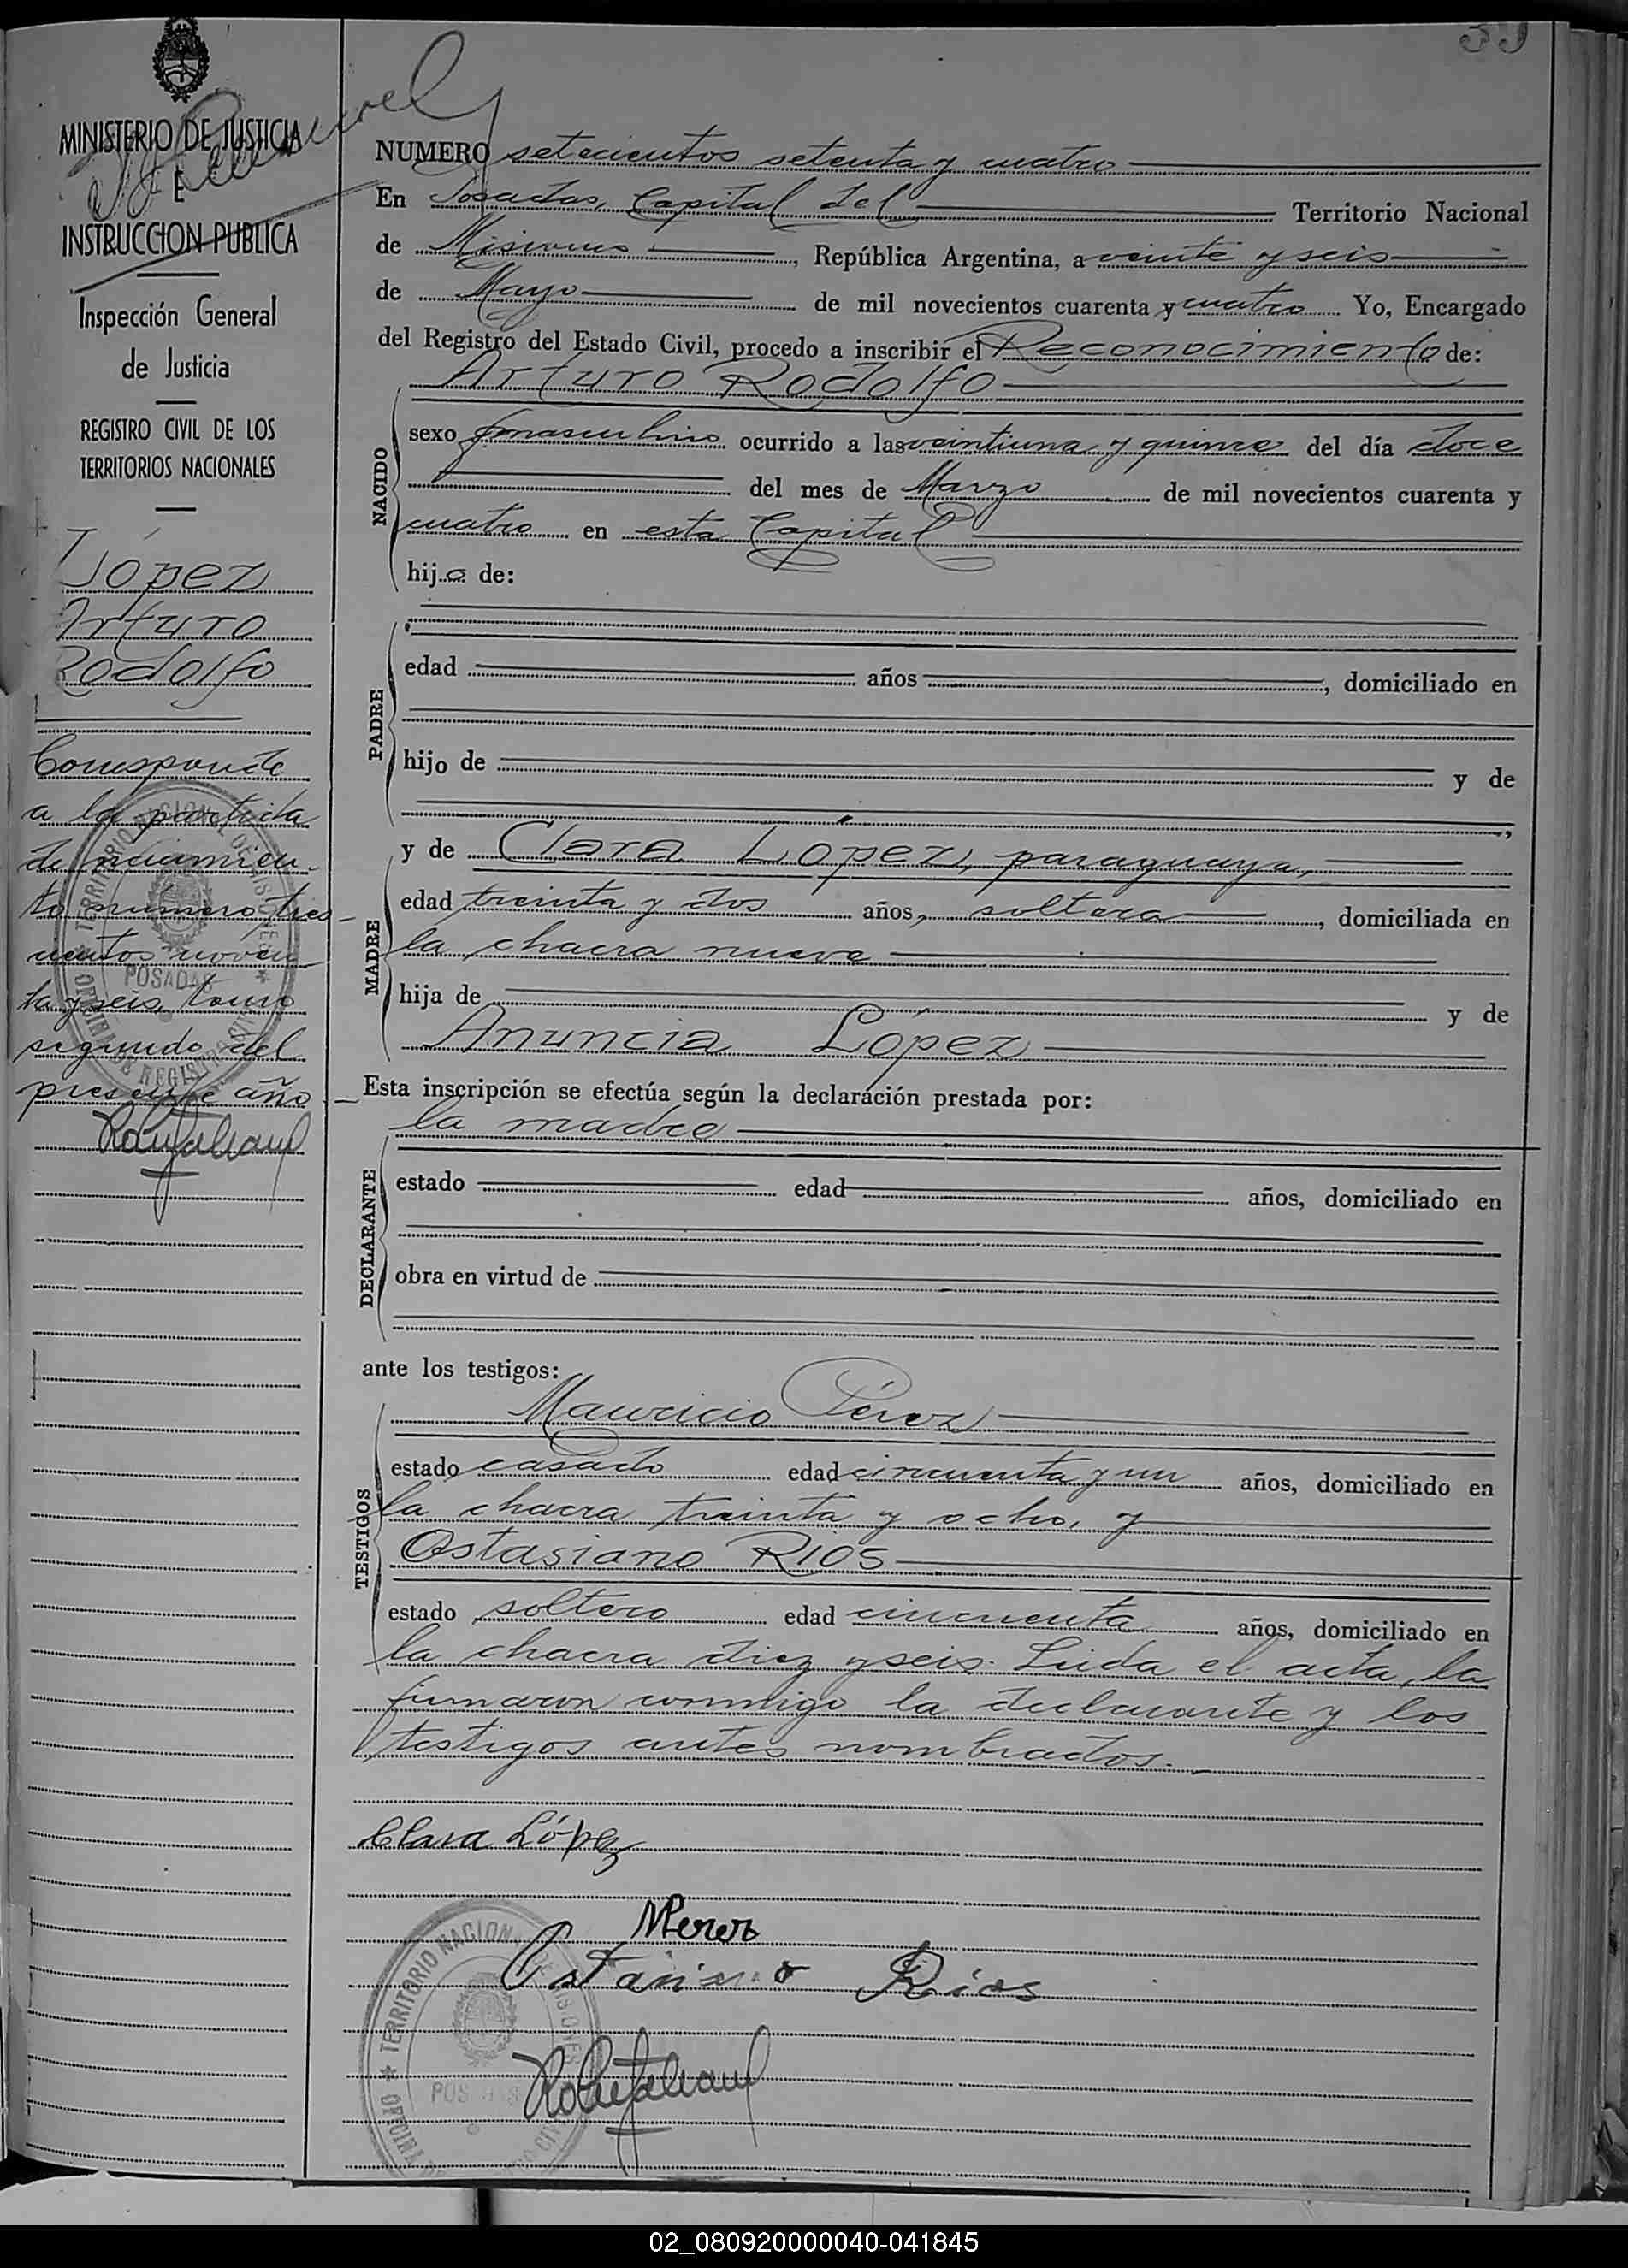 39
MINISTERIO DE JUSTICIA
E
INSTRUCCION PUBLICA
Inspección General
de Justicia
REGISTRO CIVIL DE LOS
TERRITORIOS NACIONALES
López
Arturo
Rodolfo
Corresponde
a la partida
de nacimien-
to número tres-
cientos noven-
ta y seis, tomo
segundo del
presente año
TERRITORIO NACIONAL DE MISIONES
POSADAS
NUMERO setecientos setenta y cuatro
En Posadas, Capital del Territorio Nacional
de Misiones, República Argentina, a veinte y seis
de Mayo de mil novecientos cuarenta y cuatro Yo, Encargado
del Registro del Estado Civil, procedo a inscribir el Reconocimiento de:
Arturo Rodolfo
NACIDO
sexo masculino ocurrido a las veintiuna y quince del día doce
del mes de Marzo de mil novecientos cuarenta y
cuatro en esta Capital
hijo de:
PADRE
edad años, domiciliado en
hijo de y de
MADRE
y de Clara López, paraguaya,
edad treinta y dos años, soltera, domiciliada en
la chacra nueve
hija de y de
Anuncia López
Esta inscripción se efectúa según la declaración prestada por:
la madre
DECLARANTE
estado edad años, domiciliado en
obra en virtud de
ante los testigos:
TESTIGOS
Mauricio Pérez
estado casado edad cincuenta y un años, domiciliado en
la chacra treinta y ocho, y
Ostasiano RIOS
estado soltero edad cincuenta años, domiciliado en
la chacra diez y seis. Leida el acta, la
firmaron conmigo la declarante y los
testigos antes nombrados.
Clara López
MPerez
Ostasiano Rios
TERRITORIO NACIONAL DE MISIONES
POSADAS
02_080920000040-041845